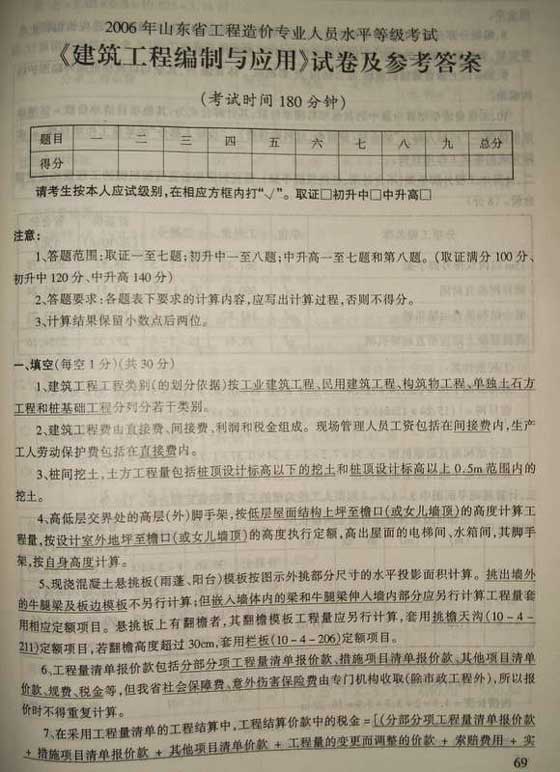 2006年山东省工程造价专业人员水平等级考试
《建筑工程编制与应用》试卷及参考答案
(考试时间180分钟)
题目 一 二 三 四 五 六 七 八 九 总分
得分
请考生按本人应试级别,在相应方框内打“√”。取证□初升中□中升高□
注意:
1、答题范围:取证一至七题;初升中一至八题;中升高一至七题和第八题。(取证满分100分、
初升中120分、中升高140分)
2、答题要求:各题表下要求的计算内容,应写出计算过程,否则不得分。
3、计算结果保留小数点后两位。
一、填空(每空1分)(共30分)
1、建筑工程工程类别(的划分依据)按工业建筑工程、民用建筑工程、构筑物工程、单独土石方
工程和桩基础工程分列分若干类别。
2、建筑工程费由直接费、间接费、利润和税金组成。现场管理人员工资包括在间接费内,生产
工人劳动保护费包括在直接费内。
3、桩间挖土,土方工程量包括桩顶设计标高以下的挖土和桩顶设计标高以上0.5m范围内的
挖土。
4、高低层交界处的高层(外)脚手架,按低层屋面结构上坪至檐口(或女儿墙顶)的高度计算工
程量,按设计室外地坪至檐口(或女儿墙顶)的高度执行定额,高出屋面的电梯间、水箱间,其脚手
架,按自身高度计算。
5、现浇混凝土悬挑板(雨蓬、阳台)模板按图示外挑部分尺寸的水平投影面积计算。挑出墙外
的牛腿梁及板边模板不另行计算;但嵌入墙体内的梁和牛腿梁伸入墙内部分应另行计算工程量套
用相应定额项目。悬挑板上有翻檐者,其翻檐模板工程量应另行计算,套用挑檐天沟(10-4-
211)定额项目,若翻檐高度超过30cm,套用栏板(10-4-206)定额项目。
6、工程量清单报价款包括分部分项工程量清单报价款、措施项目清单报价款、其他项目清单
价款、规费、税金等,但我省社会保障费、意外伤害保险费由专门机构收取(除市政工程外),所以报
价时不得重复计算。
7、在采用工程量清单的工程结算中,工程结算价款中的税金=[(分部分项工程量清单报价款
+措施项目清单报价款+其他项目清单价款+工程量的变更而调整的价款+索赔费用+实
69